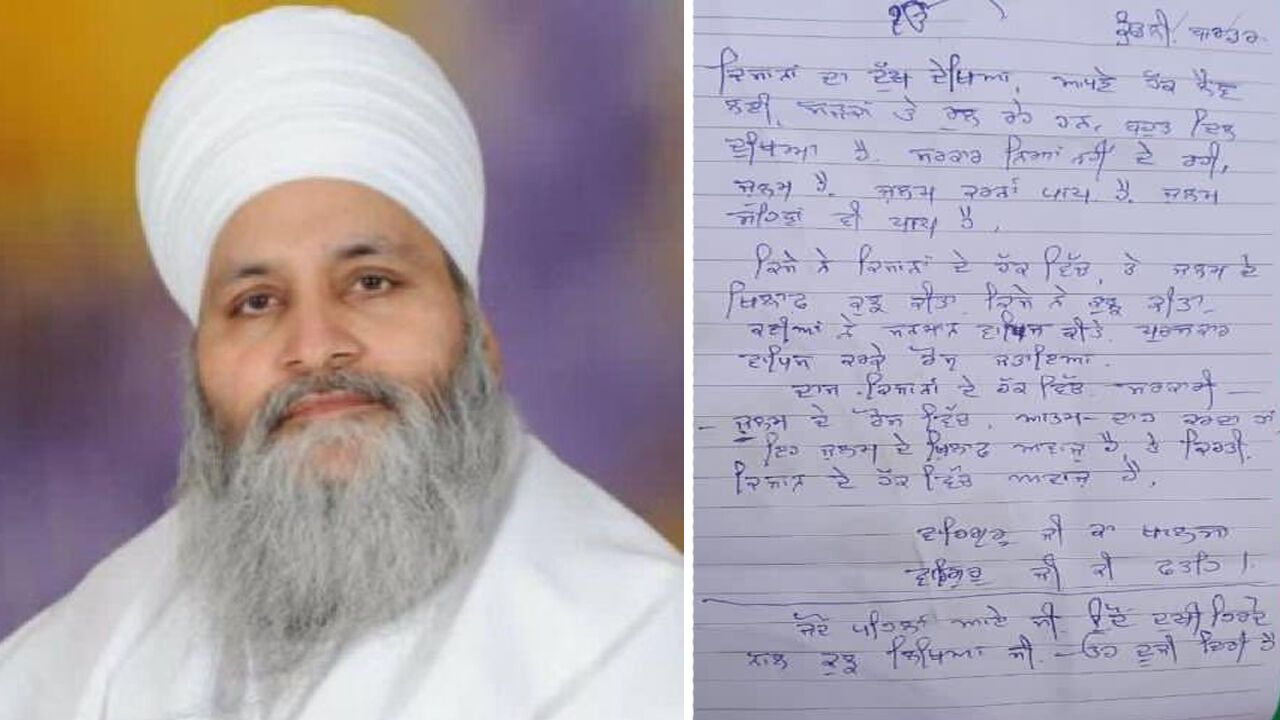 ੴ
ਕੁੰਡਲੀ ਬਾਰਡਰ
ਕਿਸਾਨਾਂ ਦਾ ਦੁੱਖ ਦੇਖਿਆ, ਆਪਣੇ ਹੱਕ ਲੈਣ
ਲਈ, ਸੜਕਾਂ ਤੇ ਰੁਲ ਰਹੇ ਹਨ, ਬਹੁਤ ਦਿਲ
ਦੁਖਿਆ ਹੈ. ਸਰਕਾਰ ਨਿਆਂ ਨਹੀਂ ਦੇ ਰਹੀ,
ਜ਼ੁਲਮ ਹੈ. ਜ਼ੁਲਮ ਕਰਨਾ ਪਾਪ ਹੈ. ਜ਼ੁਲਮ
ਸਹਿਣਾ ਵੀ ਪਾਪ ਹੈ.
ਕਿਸੇ ਨੇ ਕਿਸਾਨਾਂ ਦੇ ਹੱਕ ਵਿੱਚ, ਤੇ ਜ਼ੁਲਮ ਦੇ
ਖਿਲਾਫ ਕੁਝ ਕੀਤਾ ਕਿਸੇ ਨੇ ਕੁਝ ਕੀਤਾ.
ਕਈਆਂ ਨੇ ਸਨਮਾਨ ਵਾਪਿਸ ਕੀਤੇ. ਪੁਰਸਕਾਰ
ਵਾਪਿਸ ਕਰਕੇ ਰੋਸ ਜਤਾਇਆ.
ਦਾਸ ਕਿਸਾਨਾਂ ਦੇ ਹੱਕ ਵਿੱਚ ਸਰਕਾਰੀ –
– ਜ਼ੁਲਮ ਦੇ ਰੋਸ ਵਿੱਚ, ਆਤਮ-ਦਾਹ ਕਰਦਾ ਹਾਂ
ਇਹ ਜ਼ੁਲਮ ਦੇ ਖਿਲਾਫ ਅਵਾਜ਼ ਹੈ, ਤੇ ਕਿਰਤੀ.
ਕਿਸਾਨ ਦੇ ਹੱਕ ਵਿੱਚ ਅਵਾਜ਼ ਹੈ.
ਵਾਹਿਗੁਰੂ ਜੀ ਕਾ ਖਾਲਸਾ
ਵਾਹਿਗੁਰੂ ਜੀ ਕੀ ਫਤਹਿ।
ਪਹਿਲਾਂ ਆਏ ਸੀ ਉਦੋਂ ਦੁਖੀ ਹਿਰਦੇ
ਨਾਲ ਕੁਝ ਲਿਖਿਆ ਸੀ. – ਉਹ ਦੂਜੀ ਹੈ